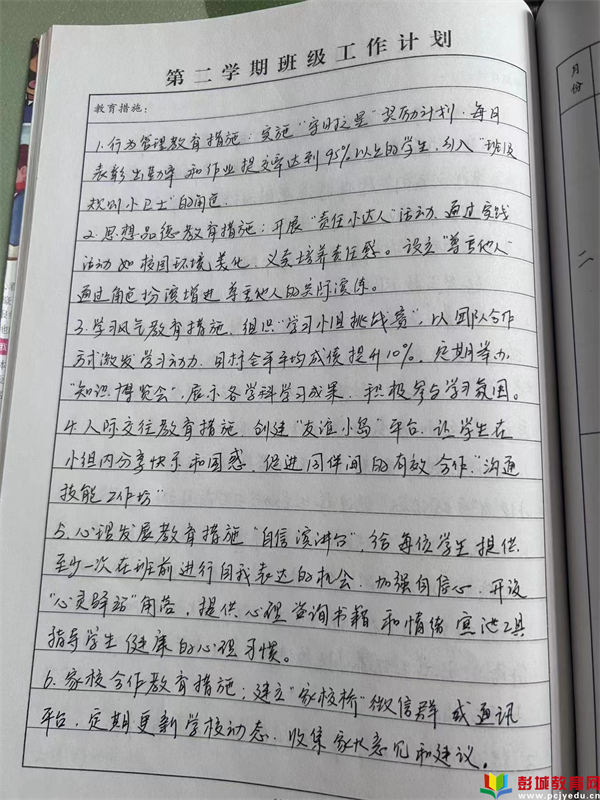 第二学期班级工作计划
教育措施:
1.行为管理教育措施:实施“守时之星”奖励计划,每月
表彰出勤率和作业提交率达到95%以上的学生,引入“班级
规则小卫士”的角色.
2.思想品德教育措施:开展“责任小达人”活动,通过实践
活动如校园环境美化、义卖培养责任感。设立“尊重他人”
通过角色扮演增进尊重他人的实际演练。
3.学习风气教育措施.组织“学习小组挑战赛”,以团队合作
方式激发学习动力.目标全年平均成绩提升10%,定期举办
“知识博览会”,展示各学科学习成果,积极参与学习氛围。
4.人际交往教育措施.创建“友谊小岛”平台.让学生在
小组内分享快乐和困惑,促进同伴间的有效合作.“沟通
技能工作坊”
5.心理发展教育措施“自信演讲台”,给每位学生提供
至少一次在班前进行自我表达的机会.加强自信心.开设
“心灵驿站”角落,提供心理咨询书籍和情绪宣泄工具
指导学生健康的心理习惯。
6.家校合作教育措施:建立“家校桥”微信群或通讯
平台,定期更新学校动态.收集家长意见和建议。
月
份
二
彭城教育网
www.pcjyedu.cn